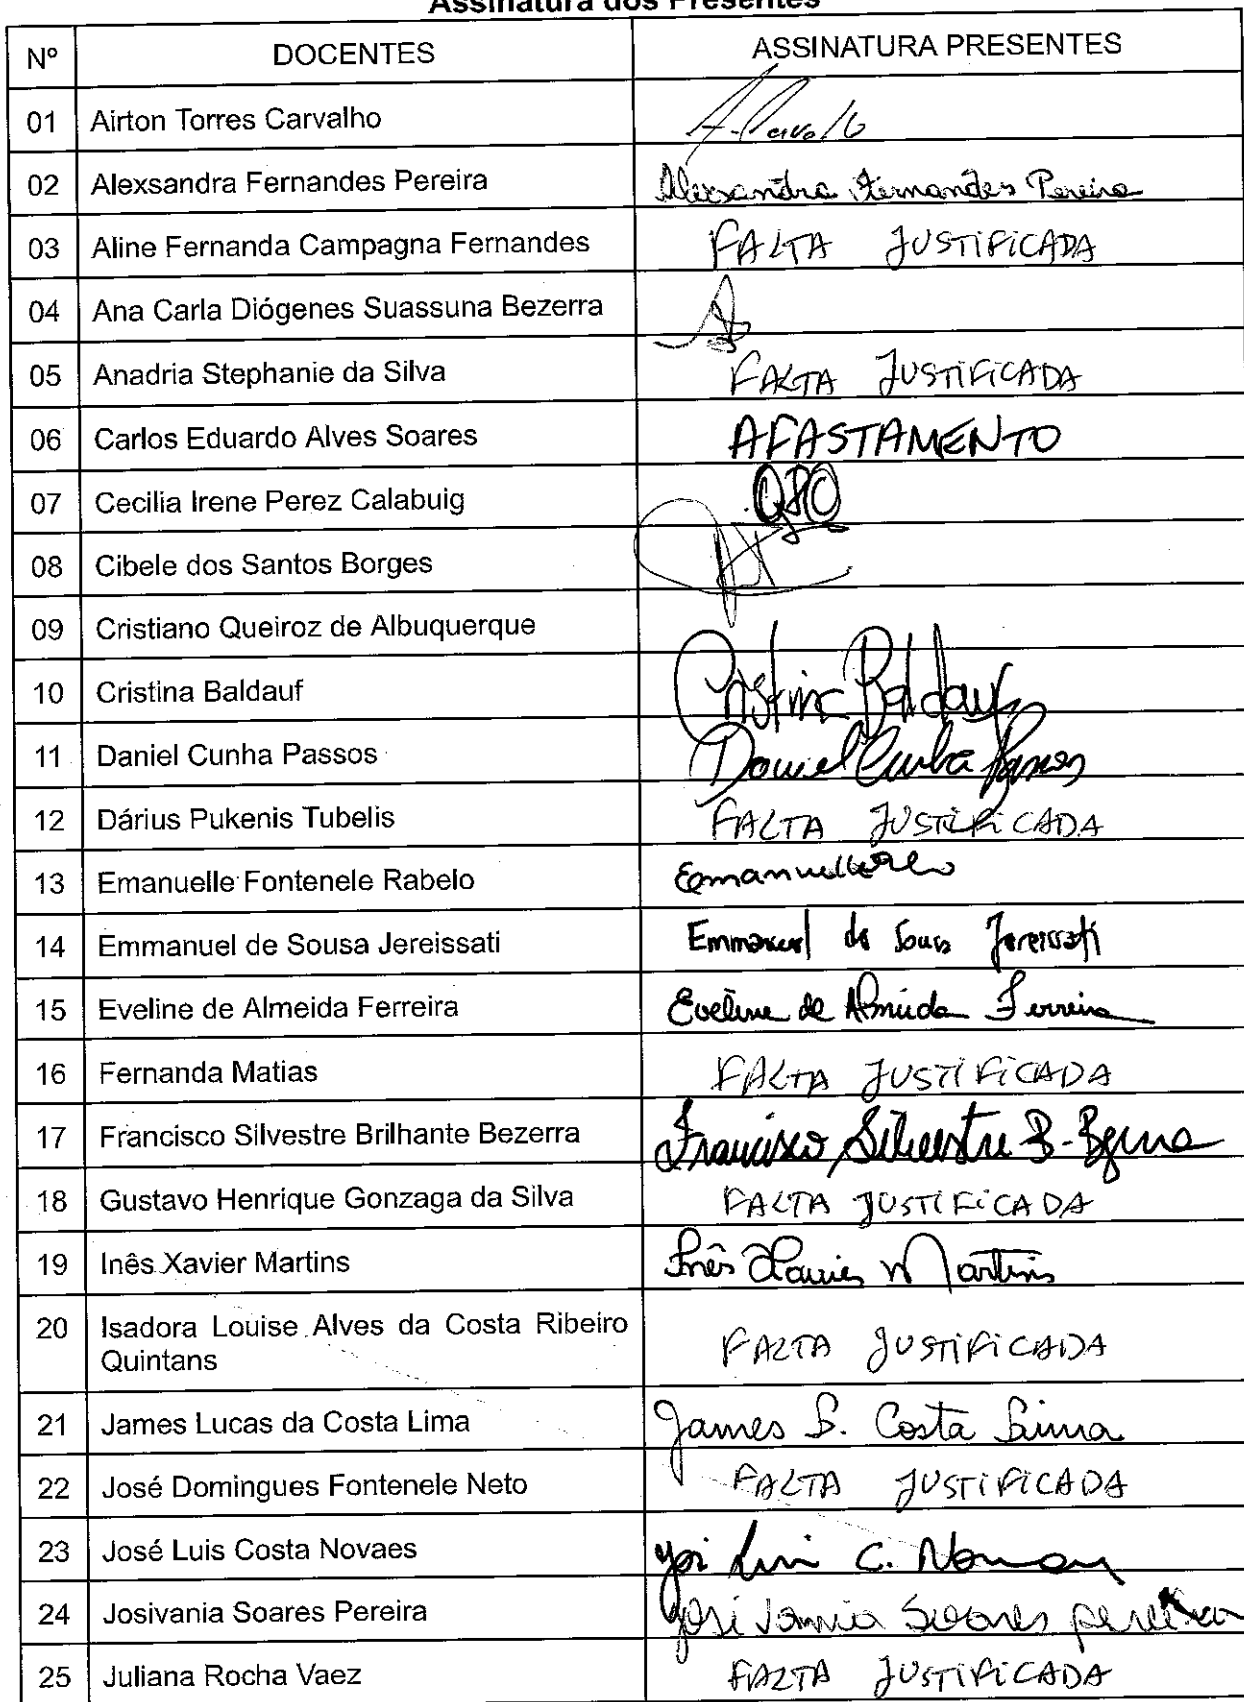 Assinatura dos Presentes
Nº DOCENTES ASSINATURA PRESENTES
01 Airton Torres Carvalho
02 Alexsandra Fernandes Pereira Alexsandra Fernandes Pereira
03 Aline Fernanda Campagna Fernandes FALTA JUSTIFICADA
04 Ana Carla Diógenes Suassuna Bezerra
05 Anadria Stephanie da Silva FALTA JUSTIFICADA
06 Carlos Eduardo Alves Soares AFASTAMENTO
07 Cecilia Irene Perez Calabuig
08 Cibele dos Santos Borges
09 Cristiano Queiroz de Albuquerque
10 Cristina Baldauf Cristina Baldauf
11 Daniel Cunha Passos Daniel Cunha Passos
12 Dárius Pukenis Tubelis FALTA JUSTIFICADA
13 Emanuelle Fontenele Rabelo
14 Emmanuel de Sousa Jereissati Emmanuel de Sousa Jereissati
15 Eveline de Almeida Ferreira Eveline de Almeida Ferreira
16 Fernanda Matias FALTA JUSTIFICADA
17 Francisco Silvestre Brilhante Bezerra Francisco Silvestre B. Bezerra
18 Gustavo Henrique Gonzaga da Silva FALTA JUSTIFICADA
19 Inês Xavier Martins Inês Xavier Martins
20 Isadora Louise Alves da Costa Ribeiro
Quintans FALTA JUSTIFICADA
21 James Lucas da Costa Lima James L. Costa Lima
22 José Domingues Fontenele Neto FALTA JUSTIFICADA
23 José Luis Costa Novaes José Luis C. Novaes
24 Josivania Soares Pereira Josivania Soares Pereira
25 Juliana Rocha Vaez FALTA JUSTIFICADA